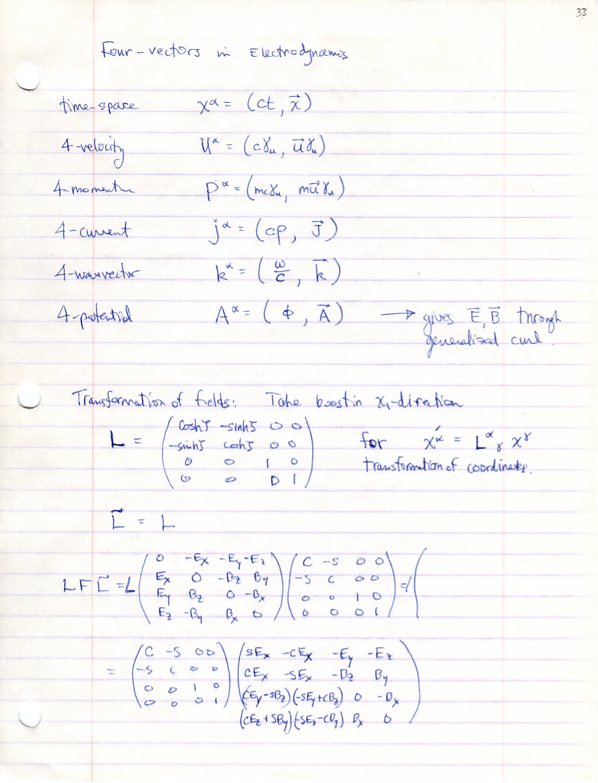 33
Four-vectors in Electrodynamics
time-space xᵅ = (ct, x⃗)
4-velocity Uᵅ = (cγᵤ, u⃗γᵤ)
4-momentum Pᵅ = (mcγᵤ, mu⃗γᵤ)
4-current jᵅ = (cρ, J⃗)
4-wavevector kᵅ = (ω/c, k⃗)
4-potential Aᵅ = (ϕ, A⃗) → gives E⃗, B⃗ through
generalized curl.
Transformation of fields: Take boost in x₁-direction
L = ( coshζ -sinhζ 0 0
-sinhζ coshζ 0 0
0 0 1 0
0 0 0 1 ) for x'ᵅ = Lᵅᵧ xᵞ
transformation of coordinates.
L̃ = L
L F L̃ = L ( 0 -Ex -Ey -Ez ) ( C -S 0 0 ) = (
Ex 0 -Bz By -S C 0 0
Ey Bz 0 -Bx 0 0 1 0
Ez -By Bx 0 0 0 0 1
= ( C -S 0 0 ) ( SEx -CEx -Ey -Ez )
-S C 0 0 CEx -SEx -Bz By
0 0 1 0 (CEy-SBz) (-SEy+CBz) 0 -Bx
0 0 0 1 (CEz+SBy) (-SEz-CBy) Bx 0